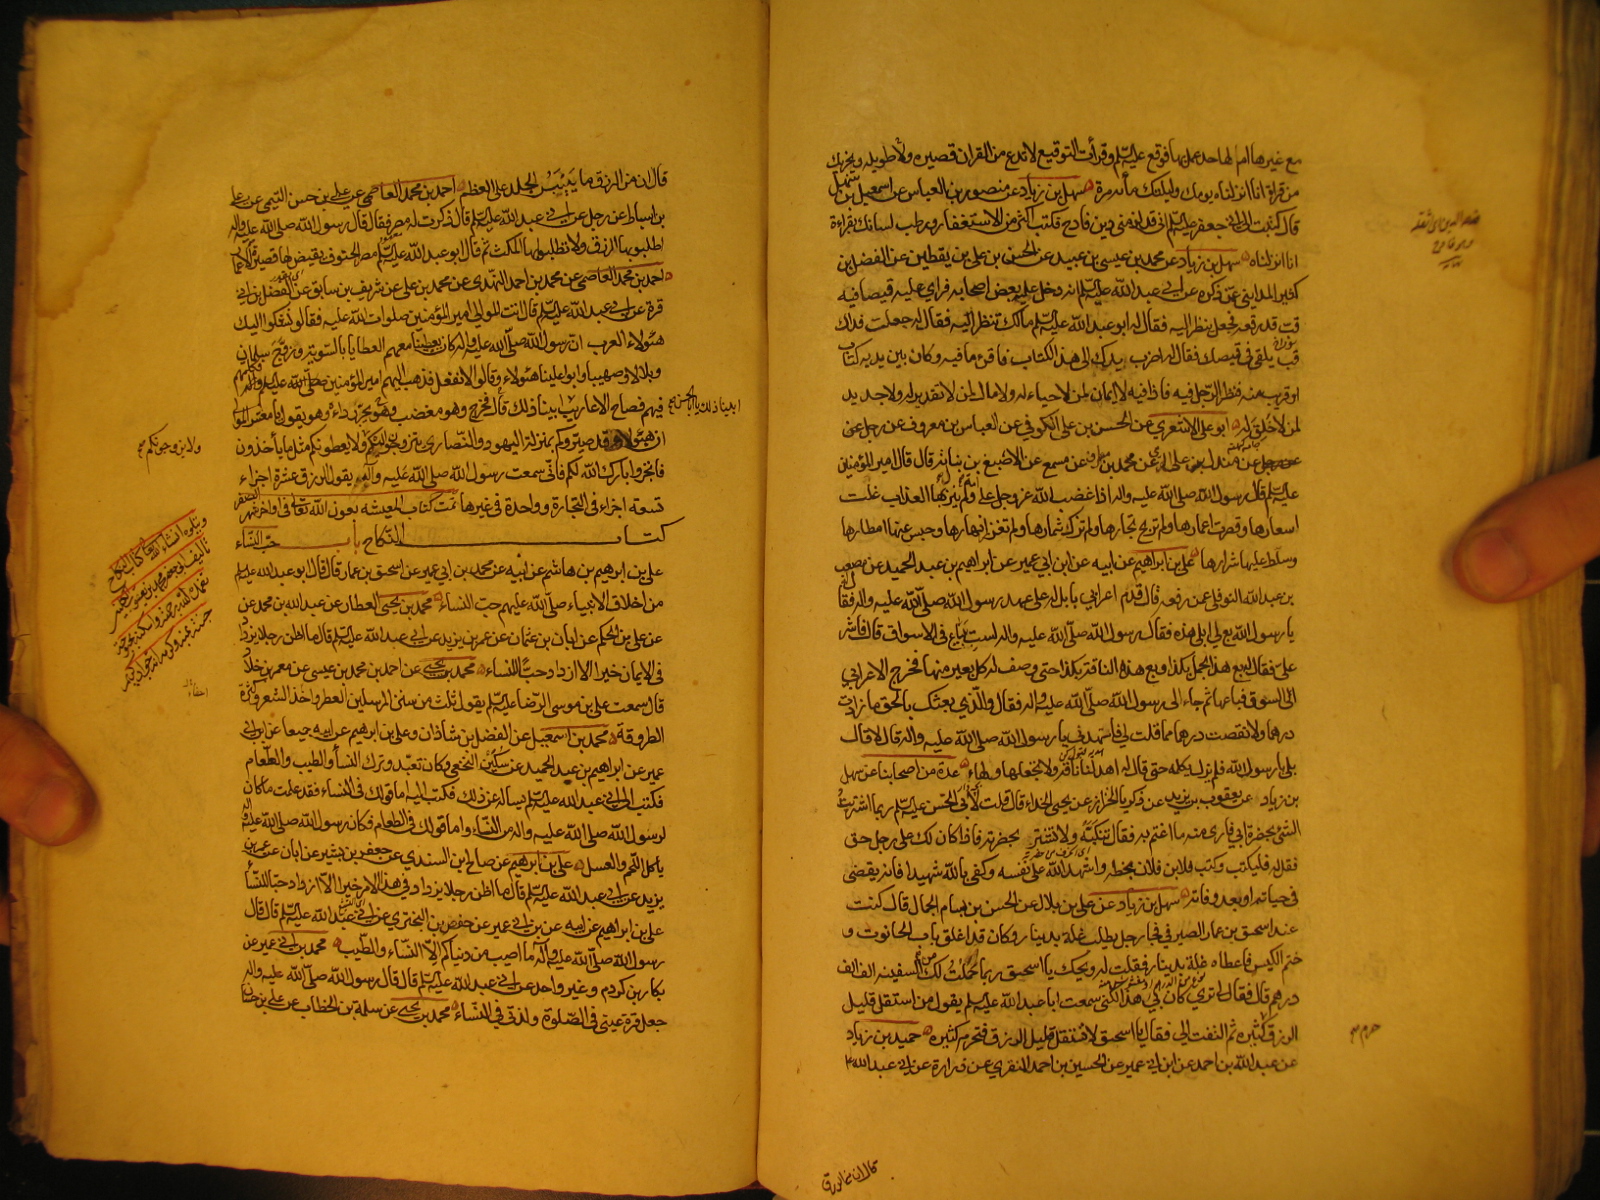 مع غيرها ام لها حد عمل بها فوقع عليه السلم وقرأت التوقيع لا تدع من القران قصيره ولا طويله ويجزيك
من قراءة انا انزلناه يومك وليلتك مأة مرة سهل بن زياد عن منصور بن العباس عن اسمعيل بن سهل
قال كتبت الى ابي جعفر عليه السلم اني قد لزمني دين فادح فكتب اكثر من الاستغفار ورطب لسانك بقراءة
انا انزلناه سهل بن زياد عن محمد بن عيسى بن عبيد عن الحسن بن علي بن يقطين عن الفضل بن
كثير المدايني عمن ذكره عن ابي عبد الله عليه السلم انه دخل عليه بعض اصحابه فراي عليه قميصا فيه
قب قد رقعه فجعل ينظر اليه فقال له ابو عبد الله عليه السلم مالك تنظر اليه فقال له جعلت فداك
قب يلقى في قميصك فقال له اضرب يدك الى هذا الكتاب فاقرء ما فيه وكان بين يديه كتاب
او قريب منه فنظر الرجل فيه فاذا فيه لا ايمان لمن لا حياء له ولا مال لمن لا تقدير له ولا جديد
لمن لا خلق له ابو علي الاشعري عن الحسن بن علي الكوفي عن العباس بن معروف عن رجل عن
مندل بن علي العنزي عن محمد بن مطرف عن مسمع عن الاصبغ بن نباته قال قال امير المؤمنين
عليه السلم قال رسول الله صلى الله عليه واله اذا غضب الله عز وجل على امة ولم ينزل بها العذاب غلت
اسعارها وقصرت اعمارها ولم تربح تجارها ولم تزك ثمارها ولم تغزر انهارها وحبس عنها امطارها
وسلط عليها شرارها علي بن ابراهيم عن ابيه عن ابن ابي عمير عن ابراهيم بن عبد الحميد عن مصعب
بن عبد الله النوفلي عمن رفعه قال قدم اعرابي بابل له على عهد رسول الله صلى الله عليه واله فقال له
يا رسول الله بع لي ابلي هذه فقال له رسول الله صلى الله عليه واله لست ببياع في الاسواق قال فاشر
علي فقال له بع هذا الجمل بكذا وبع هذه الناقة بكذا حتى وصف له كل بعير منها فخرج الاعرابي
الى السوق فباعها ثم جاء الى رسول الله صلى الله عليه واله فقال والذي بعثك بالحق ما زادت
درهما ولا نقصت درهما مما قلت لي فاستهدني يا رسول الله صلى الله عليه واله قال لا قال
بلى يا رسول الله فلم يزل يكلمه حتى قال له اهد لنا ناقة ولا تجعلها ولهاء عدة من اصحابنا عن سهل
بن زياد عن يعقوب بن يزيد عن زكريا الخزاز عن يحيى الحذاء قال قلت لابي الحسن عليه السلم ربما اشتريت
الشئ بحضرة ابي فارى منه ما اغتم به فقال تنكبه ولا تشتر بحضرته فاذا كان لك على رجل حق
فقل له فليكتب وكتب فلان بن فلان بخطه واشهد الله على نفسه وكفى بالله شهيدا فانه يقضى
في حياته او بعد وفاته سهل بن زياد عن علي بن بلال عن الحسن بن بسام الجمال قال كنت
عند اسحق بن عمار الصيرفي فجاء رجل يطلب غلة بدينار وكان قد اغلق باب الحانوت و
ختم الكيس فاعطاه غلة بدينار فقلت له ويحك يا اسحق ربما حملت لك من السفينه الف الف
درهم قال فقال لي ترى كان بي هذا لكني سمعت ابا عبد الله عليه السلم يقول من استقل قليل
الرزق حرم كثيره ثم التفت الي فقال يا اسحق لا تستقل قليل الرزق فتحرم كثيره حميد بن زياد
عن عبيد الله بن احمد عن ابن ابي عمير عن الحسين بن احمد المنقري عن زرارة عن ابي عبد الله
حرم
قال ان من الرزق
قال ان من الرزق ما ييبس الجلد على العظم احمد بن محمد العاصمي عن علي بن حسن التيمي عن علي
بن اسباط عن رجل عن ابي عبد الله عليه السلم قال ذكرت له مصر فقال قال رسول الله صلى الله عليه واله
اطلبوا بها الرزق ولا تطلبوا بها المكث ثم قال ابو عبد الله عليه السلم مصر الحتوف تقيض لها قصيرة الاعمار
احمد بن محمد العاصمي عن محمد بن احمد النهدي عن محمد بن علي عن شريف بن سابق عن الفضل بن ابي
قرة عن ابي عبد الله عليه السلم قال اتت الموالي امير المؤمنين صلوات الله عليه فقالوا نشكوا اليك
هئولاء العرب ان رسول الله صلى الله عليه واله كان يعطينا معهم العطايا بالسوية وزوج سلمان
وبلالا وصهيبا وابوا علينا هئولاء وقالوا لا نفعل فذهب اليهم امير المؤمنين فكلمهم
فيهم فصاح الاعاريب ابينا ذلك قال فخرج وهو مغضب وهو يجر رداءه وهو يقول يا معشر الموالي
ابينا ذلك يا ابا الحسن
ان هئولاء قد صيروكم بمنزلة اليهود والنصارى يتزوجون اليكم ولا يعطونكم مثل ما يأخذون
ولا يزوجونكم
فاتجروا بارك الله لكم فاني سمعت رسول الله صلى الله عليه واله يقول الرزق عشرة اجزاء
تسعة اجزاء في التجارة وواحدة في غيرها تمت كتاب المعيشه بعون الله تعالى في اواخر شهر الصفر
ويتلوه انشاء الله تعالى كتاب النكاح
تاليف ابو جعفر محمد بن يعقوب
كتاب النكاح باب حب النساء
علي بن ابراهيم بن هاشم عن ابيه عن محمد بن ابي عمير عن اسحق بن عمار قال قال ابو عبد الله عليه السلم
من اخلاق الانبياء صلى الله عليهم حب النساء محمد بن يحيى العطار عن عبد الله بن محمد عن
عن علي بن الحكم عن ابان بن عثمان عن عمر بن يزيد عن ابي عبد الله عليه السلم قال ما اظن رجلا يزداد
في الايمان خيرا الا ازداد حبا للنساء محمد بن يحيى عن احمد بن محمد بن عيسى عن معمر بن خلاد
قال سمعت علي بن موسى الرضا عليه السلم يقول ثلث من سنن المرسلين العطر واخذ الشعر وكثرة
الطروقة محمد بن اسمعيل عن الفضل بن شاذان وعلي بن ابراهيم عن ابيه جميعا عن ابن ابي
عمير عن ابراهيم بن عبد الحميد عن سكين النخعي وكان تعبد وترك النسأ والطيب والطعام
فكتب الى ابي عبد الله عليه السلم يساله عن ذلك فكتب اليه اما قولك في النساء فقد علمت ما كان
لرسول الله صلى الله عليه واله من النساء واما قولك في الطعام فكان رسول الله صلى الله عليه واله
ياكل اللحم والعسل علي بن ابرهيم عن صالح ابن السندي عن جعفر بن بشير عن ابان عن عمر بن
يزيد عن ابي عبد الله عليه السلم قال ما اظن رجلا يزداد في هذا الامر خيرا الا ازداد حبا للنساء
علي بن ابراهيم عن ابيه عن بن ابي عمير عن حفص بن البختري عن ابي عبد الله عليه السلم قال قال
رسول الله صلى الله عليه وآله ما اصيب من دنياكم الا النساء والطيب محمد بن ابي عمير عن
بكار بن كردم وغير واحد عن ابي عبد الله عليه السلم قال قال رسول الله صلى الله عليه واله
جعل قرة عيني في الصلوة ولذتي في النساء محمد بن يحيى عن سلمة بن الخطاب عن علي بن حسان